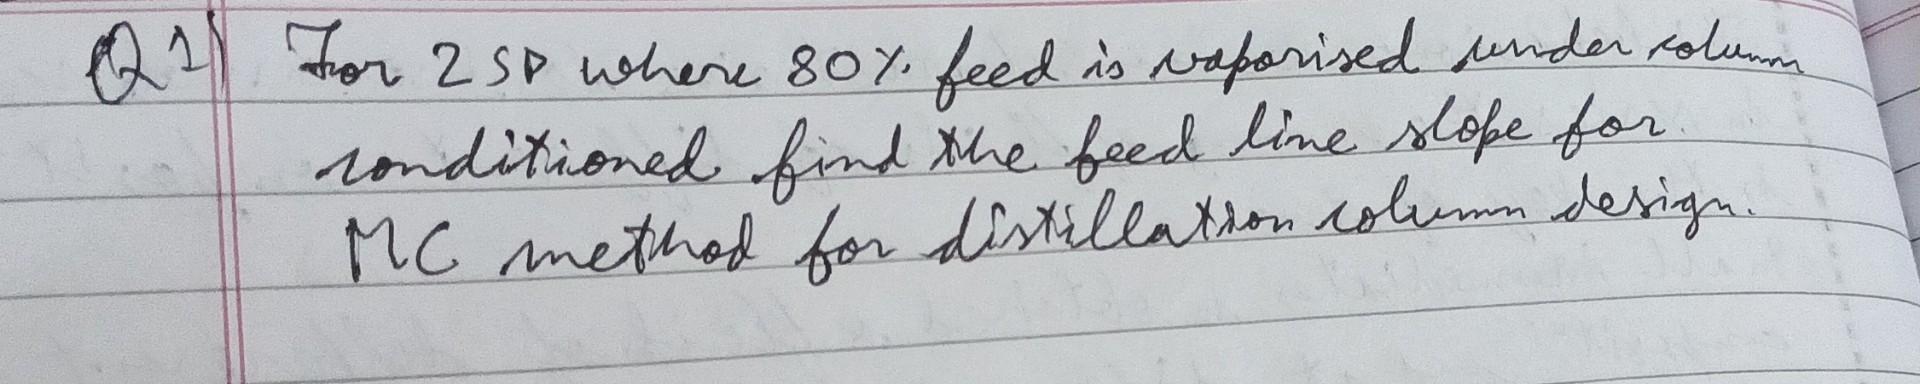 Q1) For 2 SP where 80%. feed is vaporised under column
conditioned find the feed line slope for
MC method for distillation column design.